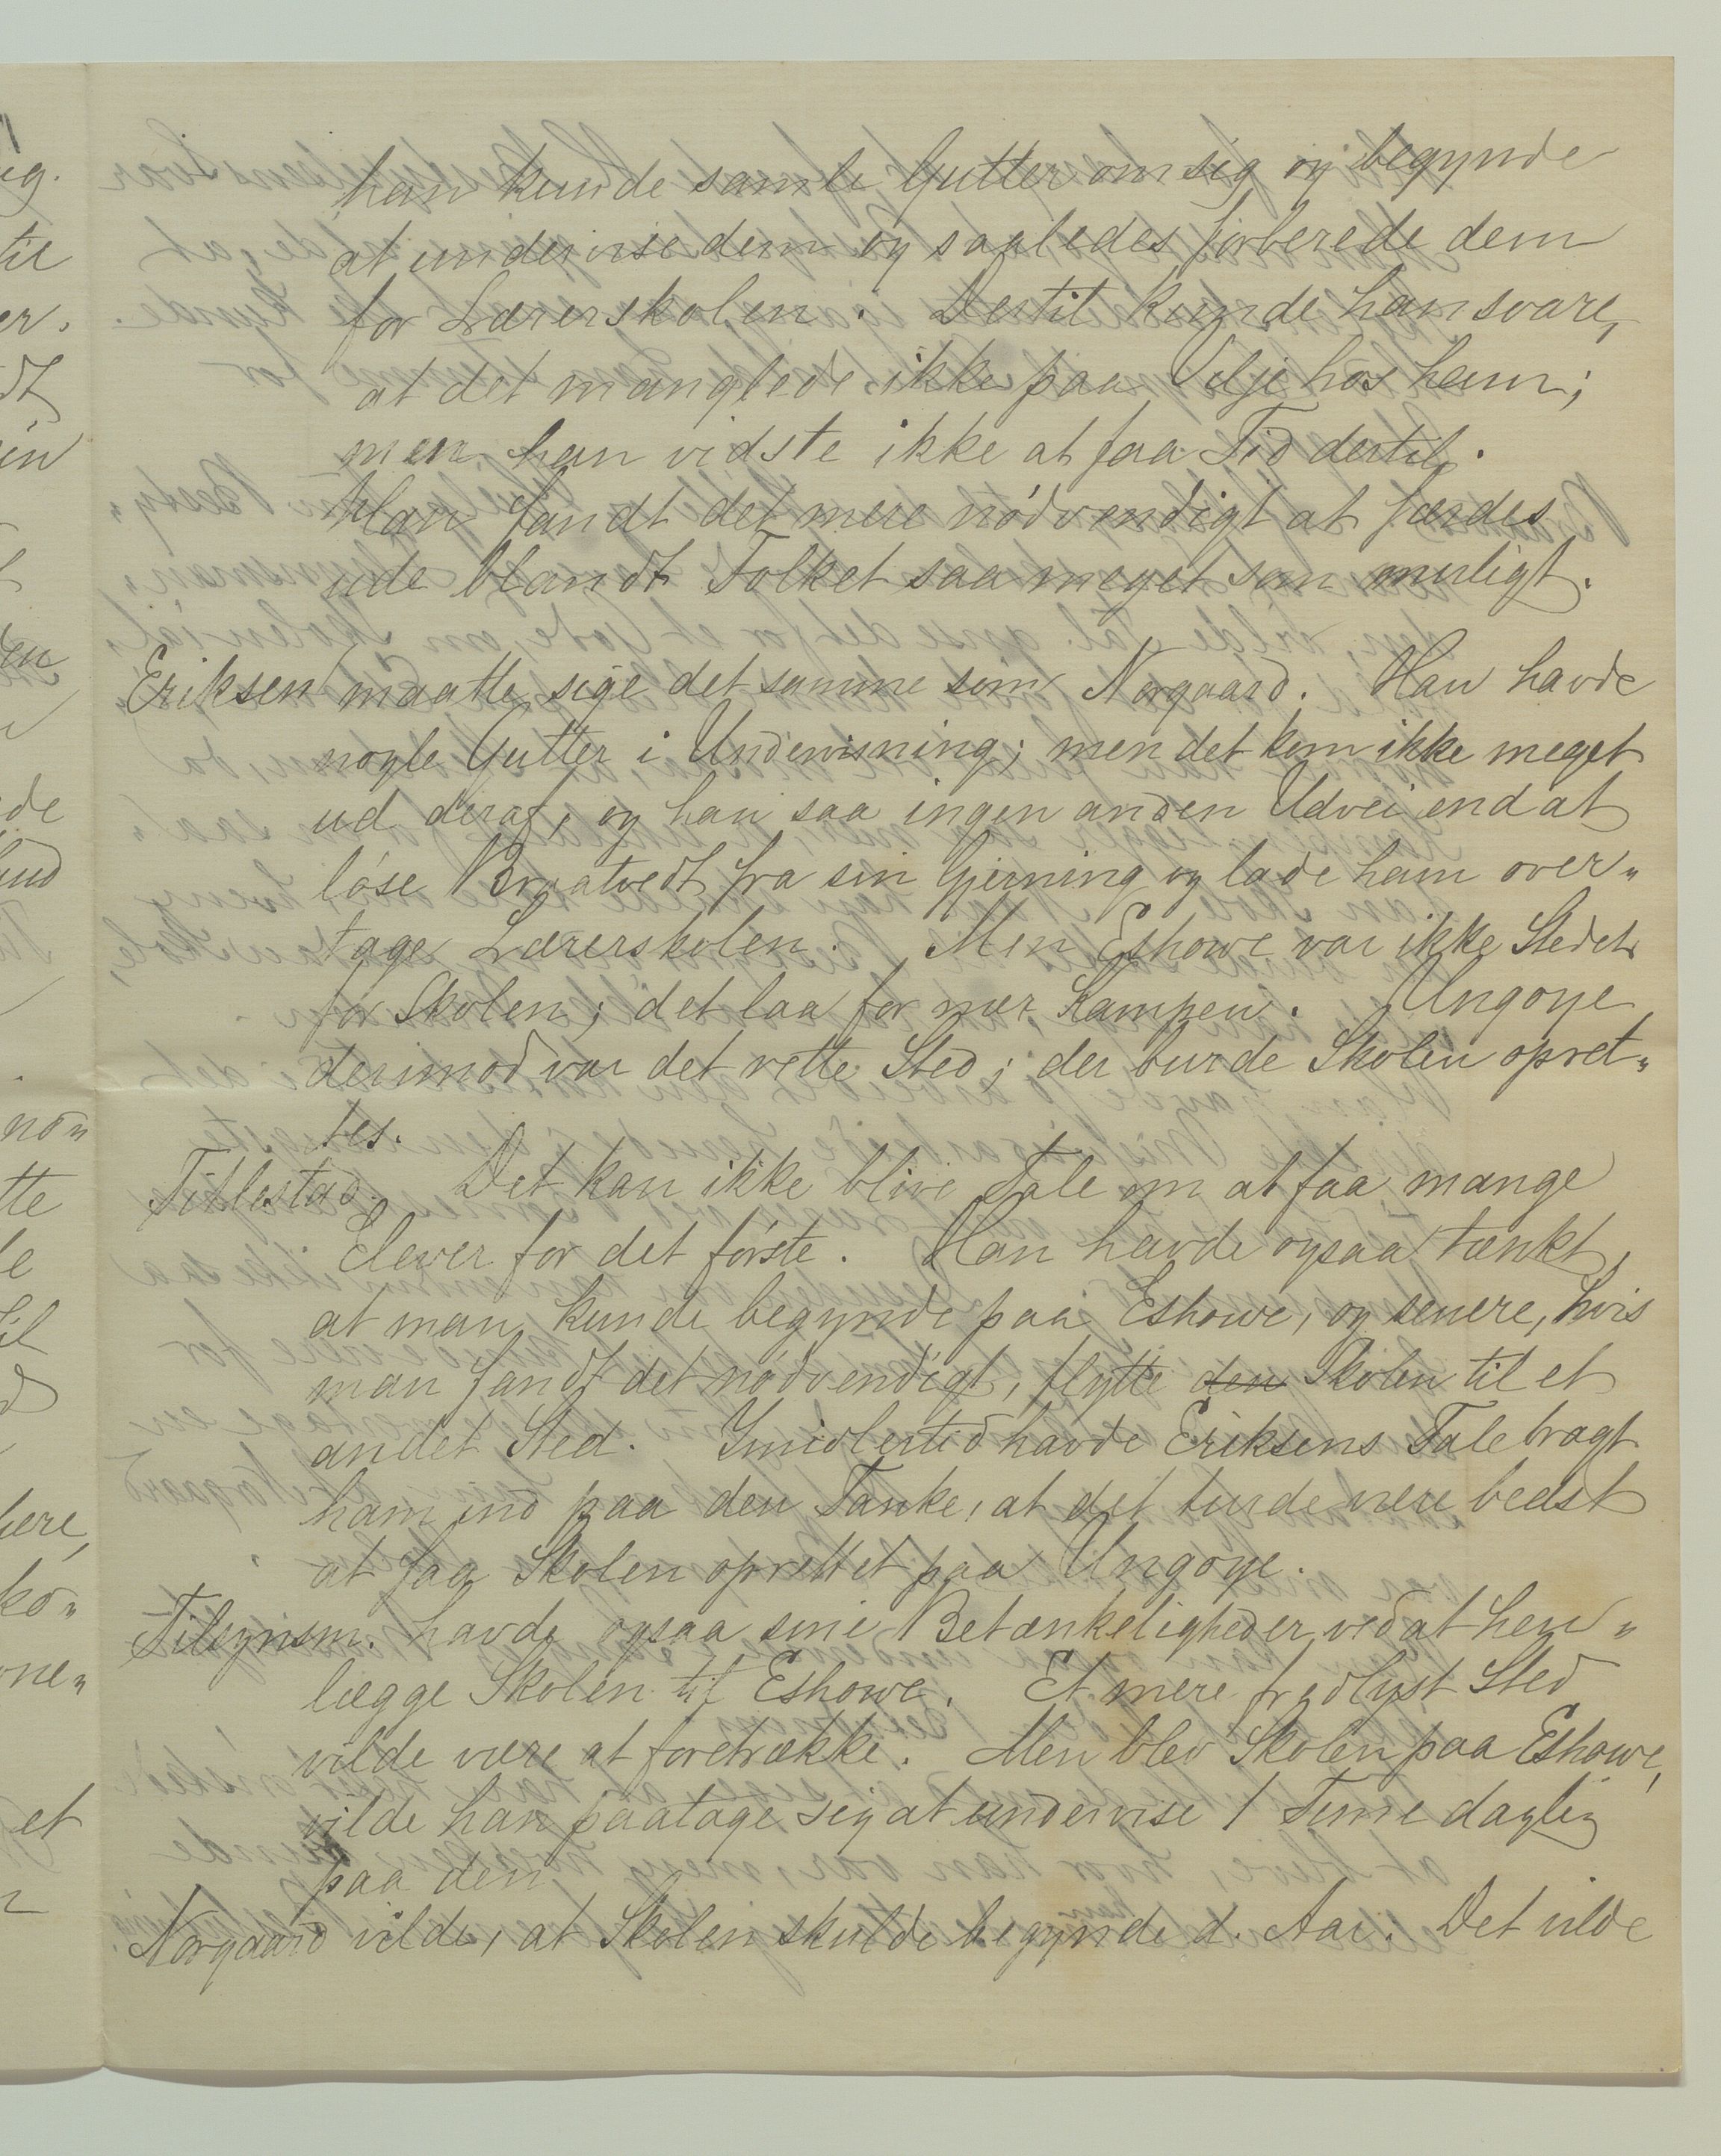 han kunde samle Gutter om sig og begynde
at undervise dem og saaledes forberede dem
for Lærerskolen. Dertil kunde han svare,
at det manglede ikke paa Vilje hos ham;
men han vidste ikke at faa Tid dertil.
Han fandt det mere nödvendigt at færdes
ude blandt Folket saa meget som muligt.
Eriksen maatte sige det samme som Norgaard. Han havde
nogle Gutter i Undervisning; men det kom ikke meget
ud deraf, og han saa ingen anden Udvei end at
löse Braatvedt fra sin Gjerning og lade ham over„
tage Lærerskolen. Men Eshowe var ikke Stedet
for Skolen; det laa for nær Kampen. Ungoye
derimod var det rette Sted; der burde Skolen opret„
tes.
Titlestad. Det kan ikke blive Tale om at faa mange
Elever for det förste. Han havde ogsaa tænkt,
at man kunde begynde paa Eshowe, og senere, hvis
man fandt det nödvendigt, flytte den Skolen til et
andet Sted. Imidlertid havde Eriksens Tale bragt
ham ind paa den Tanke, at det turde være bedst
at faa Skolen oprettet paa Ungoye.
Tilsynsm. havde ogsaa sine Betænkeligheder ved at hen„
lægge Skolen til Eshowe. Et mere fredlyst Sted
vilde være at foretrække. Men blev Skolen paa Eshowe,
vilde han paatage sig at undervise 1 Time daglig
paa den
Norgaard vilde, at Skolen skulde begynde d. Aar. Det vilde